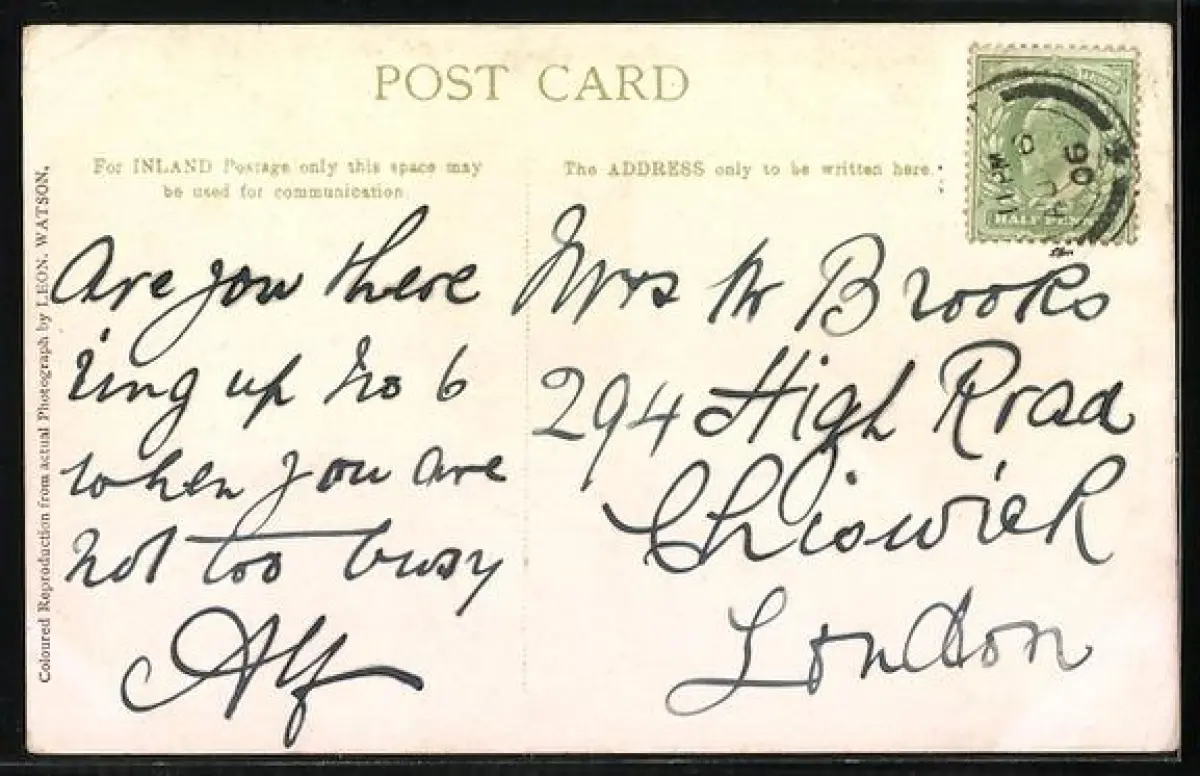 POST CARD
For INLAND Postage only this space may
be used for communication.
The ADDRESS only to be written here.
Coloured Reproduction from actual Photograph by LEON. WATSON.
Are you there
ring up No 6
when you are
not too busy
Alf
Mrs W Brooks
294 High Road
Chiswick
London
HALF PENNY
11
06